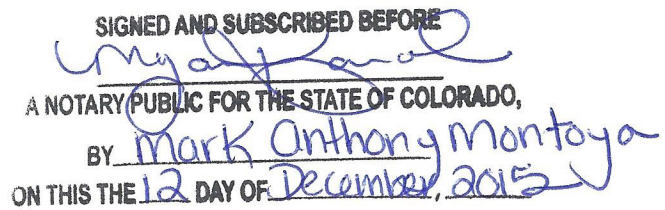 SIGNED AND SUBSCRIBED BEFORE
A NOTARY PUBLIC FOR THE STATE OF COLORADO,
BY Mark Anthony Montoya
ON THIS THE 12 DAY OF December, 2015